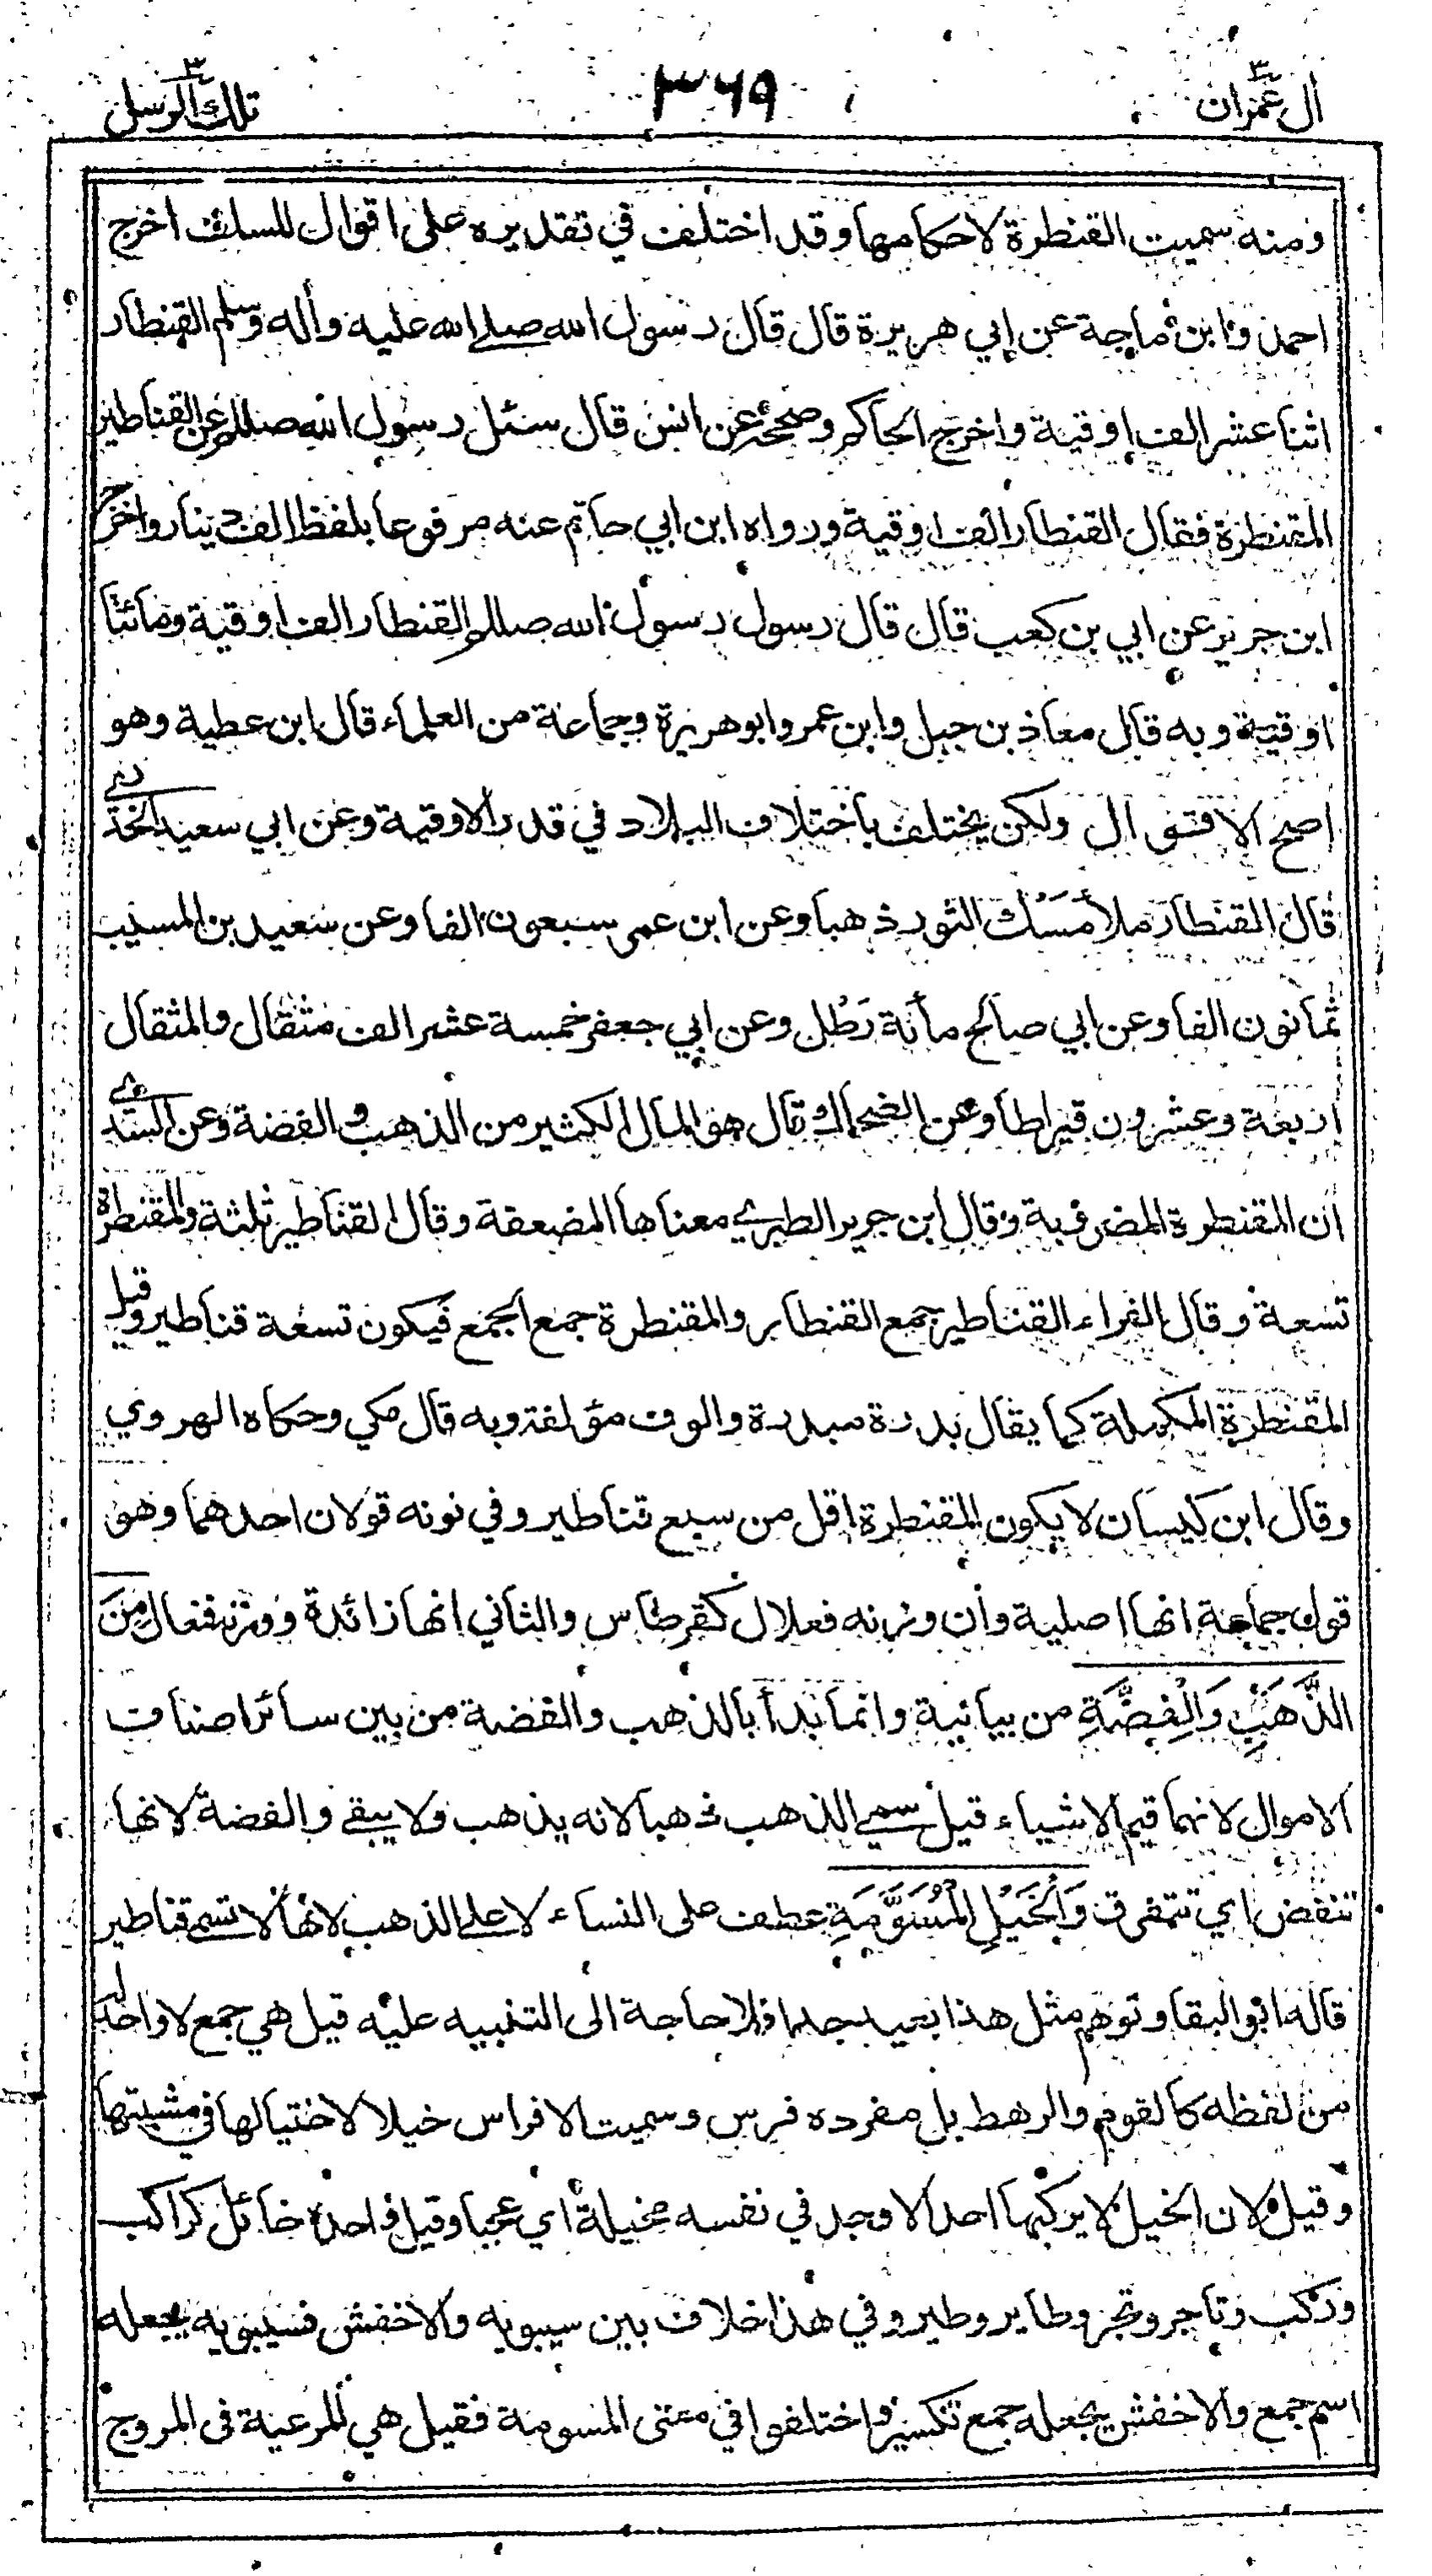 ال عمران ٣
٣٦٩
تلك الرسل ٣
ومنه سميت القنطرة لاحكامها وقد اختلف في تقديره على اقوال للسلف اخرج
احمد وابن ماجة عن ابي هريرة قال قال رسول الله صلى الله عليه واله وسلم القنطار
اثنا عشر الف اوقية واخرج الحاكم وصححه عن انس قال سئل رسول الله صللم عن القناطير
المقنطرة فقال القنطار الف اوقية ورواه ابن ابي حاتم عنه مرفوعا بلفظ الف دينار واخرج
ابن جرير عن ابي بن كعب قال قال رسول رسول الله صللم القنطار الف اوقية ومائتا
اوقية وبه قال معاذ بن جبل وابن عمر وابو هريرة وجماعة من العلماء قال ابن عطية وهو
اصح الاقوال ولكن يختلف باختلاف البلاد في قدر الاوقية وعن ابي سعيد الخدري
قال القنطار ملأ مَسْك الثور ذهبا وعن ابن عمر سبعون الفا وعن سعيد بن المسيب
ثمانون الفا وعن ابي صالح مائة رَطْل وعن ابي جعفر خمسة عشر الف مثقال والمثقال
اربعة وعشرون قيراطا وعن الضحاك قال هو المال الكثير من الذهب والفضة وعن السدي
ان المقنطرة المضروبة وقال ابن جرير الطبري معناها المضعفة وقال القناطير ثلثة والمقنطرة
تسعة وقال الفراء القناطير جمع القنطار والمقنطرة جمع الجمع فيكون تسعة قناطير وقيل
المقنطرة المكملة كما يقال بدرة مبدرة والوف مؤلفة وبه قال مكي وحكاه الهروي
وقال ابن كيسان لا يكون المقنطرة اقل من سبع قناطير وفي نونه قولان احدهما وهو
قول جماعة انها اصلية وان وزنه فعلال كقرطاس والثاني انها زائدة ووزنه فنعال مِنَ
الذَّهَبِ وَالْفِضَّةِ من بيانية وانما بدأ بالذهب والفضة من بين سائر اصناف
الاموال لانهما قيم الاشياء قيل سمي الذهب ذهبا لانه يذهب ولا يبقى والفضة لانها
تنفض اي تتفرق وَالْخَيْلِ الْمُسَوَّمَةِ عطف على النساء لا على الذهب لانها لا تسمى قناطير
قاله ابو البقا وتوهم مثل هذا بعيد جدا فلا حاجة الى التنبيه عليه قيل هي جمع لا واحد له
من لفظه كالقوم والرهط بل مفرده فرس وسميت الافراس خيلا لاختيالها في مشيتها
وقيل لان الخيل لا يركبها احد الا وجد في نفسه مخيلة اي عجبا وقيل واحده خائل كراكب
وركب وتاجر وتجر وطاير وطير وفي هذا خلاف بين سيبويه والاخفش فسيبويه يجعله
اسم جمع والاخفش يجعله جمع تكسير واختلفوا في معنى المسومة فقيل هي المرعية فى المروج